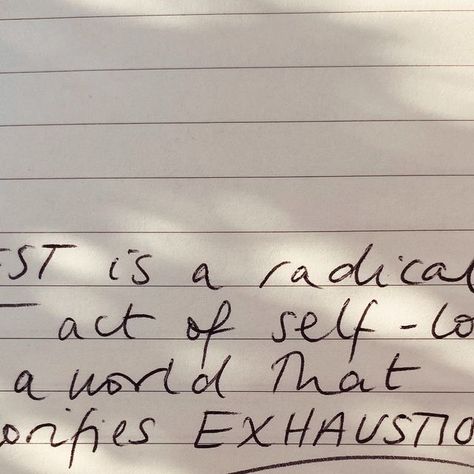 EST is a radical
act of self-lo
a world that
orifies EXHAUSTIO